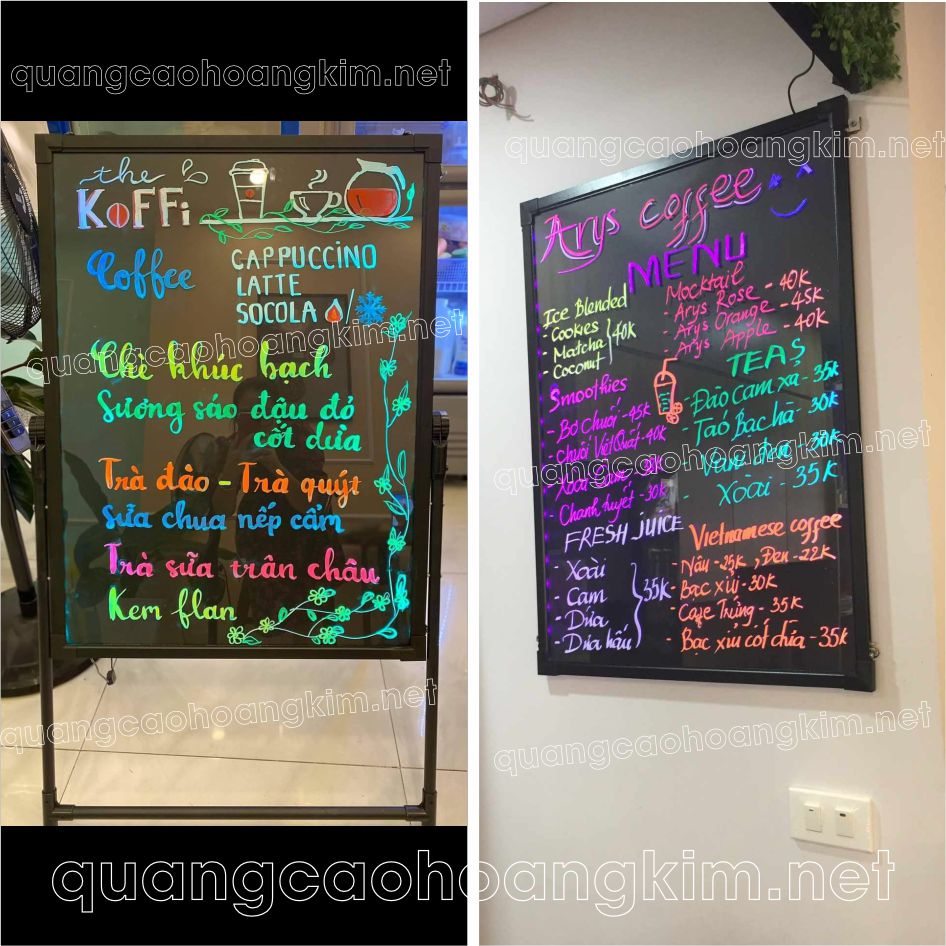 quangcaohoangkim.net
the
KOFFi
Coffee
CAPPUCCINO
LATTE
SOCOLA /
quangcaohoangkim.net
Chè khúc bạch
Sương sáo đậu đỏ
cốt dừa
Trà đào - Trà quýt
Sữa chua nếp cẩm
Trà sữa trân châu
Kem flan
quangcaohoangkim.net
quangcaohoangkim.net
Arys coffee
MENU
Ice Blended
- Cookies
- Matcha 40K
- Coconut
Mocktail
- Arys Rose - 40K
- Arys Orange - 45K
- Arys Apple - 40K
Smoothies
- Bơ Chuối - 45K
- Chuối Việt Quất - 40K
- Xoài
- Chanh tuyết - 30K
TEAS
- Đào cam xả - 35K
- Táo Bạc hà - 30K
- Vải 30K
- Xoài - 35K
quangcaohoangkim.net
FRESH JUICE
- Xoài
- Cam 35K
- Dứa
- Dưa hấu
Vietnamese coffee
- Nâu - 25K, Đen - 22K
- Bạc xỉu - 30K
- Cafe Trứng - 35K
- Bạc xỉu cốt dừa - 35K
quangcaohoangkim.net
quangcaohoangkim.net